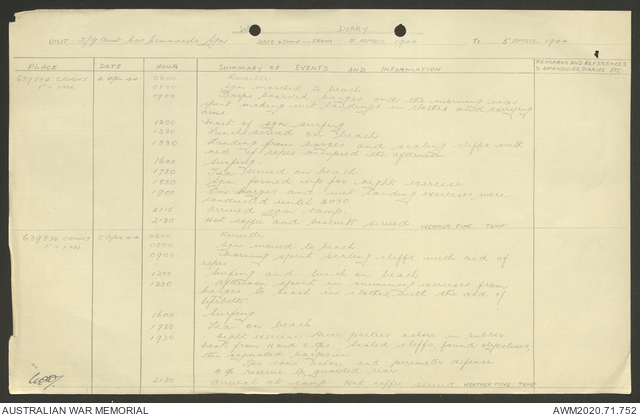 WAR DIARY
UNIT. 2/9 Aust Cav Commando Sqn DATE & TIME - FROM 4 APRIL 1944 TO 5 APRIL 1944
PLACE DATE HOUR SUMMARY OF EVENTS AND INFORMATION REMARKS AND REFERENCES TO APPENDICES, DIARIES ETC
639836 CAIRNS 0600 Reveille
1" = 1 MILE 0800 Sqn marched to beach
0900 Troops boarded barges and the morning was
spent making wet landings in clothes and carrying
arms.
1200 most of sqn surfing
1230 Lunch served on beach
1330 Landing from barges and scaling cliffs with
aid of ropes occupied the afternoon
1600 Surfing.
1730 Tea served on beach
1830 Sqn formed up for night exercise
1900 barges and wet landing exercises were
conducted until 2030
2115 arrived sqn camp.
2130 Hot coffee and biscuits served WEATHER FINE TEMP:
639836 CAIRNS 5 Apr 44 0600 Reveille
1" = 1 MILE 0800 Sqn moved to beach
0900 Morning spent scaling cliffs with aid of
ropes.
1200 Surfing and lunch on beach
1330 Afternoon spent in swimming exercises from
barges to beach in clothes with the aid of
lifebelts
1600 Surfing
1730 Tea on beach
1930 Night exercise parties ashore in rubber
boats from scaled cliffs, found objectives
then signalled barges in
Tps came ashore and perimeter defence
reserve guarded rear
2130 Arrived at camp Hot coffee served WEATHER FINE TEMP:
AUSTRALIAN WAR MEMORIAL AWM2020.71.752